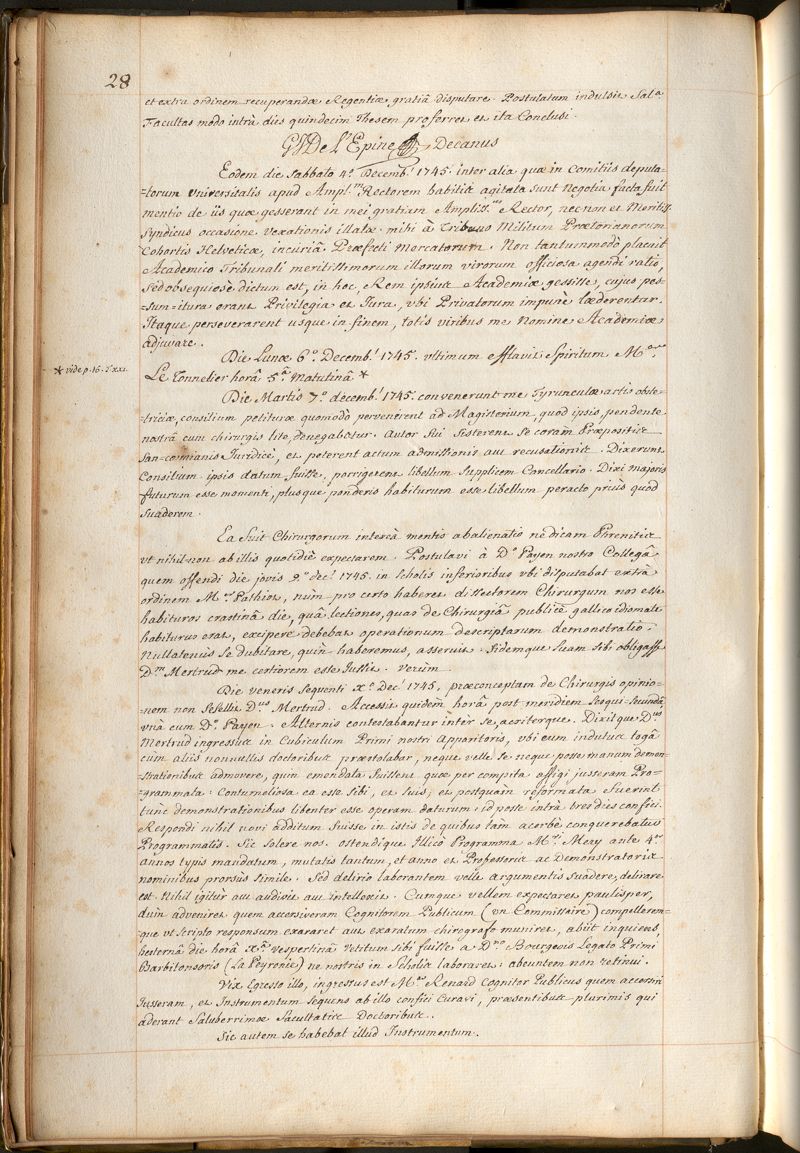 28
et extra ordinem recuperandæ Regentiæ gratiâ disputare. Postulatum indulsit Sal.a
Facultas modo intrà dies quindecim Thesem proferret et ita Conclusi.
De l'Epine Decanus
Eodem die Sabbato 4.o Decemb.i 1745. inter alia quæ in Comitiis deputa-
=torum Universitatis apud Ampl.m Rectorem habitis agitata sunt Negotia facta fuit
mentio de iis quæ gesserant in mei gratiam Ampliss.mus Rector, necnon et Meritiss.
Syndicus occasione vexationis illatæ mihi à Tribuno Militum Prætorianorum
Cohortis Helveticæ, incuriâ Præfecti Mercatorum. Non tantummodò placuit
Academico Tribunali meritissimorum illorum virorum officiosa agendi ratio,
sed obsequiosè dictum est, in hoc, Rem ipsius Academiæ gessisse, cujus pes-
=sum=itura erant Privilegia et Jura, ubi Privatorum impunè læderentur.
Itaque perseverarent usque in finem, totis viribus me Nomine Academiæ
adjuvare.
Die Lunæ 6.o Decemb.i 1745. ultimum efflavit Spiritum M.
* vide p. 16.
Le Tonnelier horâ 5.a Matutinâ *
Die Martis 7.o decemb.i 1745. convenerunt me Tyrunculæ artis obste-
=triciæ, consilium petituræ quomodò pervenirent ad Magisterium, quod ipsis, pendente
nostrâ cum chirurgis lite, denegabatur. Autor fui sisterent se coram Præpositis
San-cosmianis Juridicè, et peterent actum admissionis aut recusationis. Dixerunt
Consilium ipsis datum fuisse, porrigerent libellum supplicem Concellario. Dixi majoris
futurum esse momenti, plusque ponderis habiturum esse libellum peracto priùs quod
suaderem.
Ea fuit Chirurgorum intereà mentis abalienatio ne dicam Phrenitis
ut nihil non ab illis quotidiè expectarem. Postulavi à D.o Payen nostro Collegâ
quem offendi die jovis 9.o dec.i 1745. in scholis inferioribus ubi disputabat extrà
ordinem M.r Pathiot, nùm pro certo haberet dissectorem Chirurgum nos esse
habituros crastinâ die, quâ lectiones, quas de Chirurgiâ publicè gallico idiomate
habiturus erat, excipere debebat operationum descriptarum demonstratio.
Nullatenùs se dubitare, quin haberemus, asseruit. fidemque suam sibi obligasse
D.m Mertrud me certiorem esse Jussit. verùm
Die veneris sequenti X.o Dec.i 1745, præconceptam de Chirurgis opinio-
=nem non fefellit D.us Mertrud. Accessit quidem horâ post meridiem sesqui-secundâ,
unà cum D.o Payen. Alternis contestabantur inter se, acriterque. Dixitque D.us
Mertrud ingressus in Cubiculum Primi nostri Apparitoris, ubi eum indutus togâ
cum aliis nonnullis doctoribus præstolabar, neque velle se neque posse manum demon-
=strationibus admovere, quin emendata fuissent quæ per compita affigi jusseram Pro-
=grammata. Contumeliosa ea esse sibi, et suis; et postquam reformata fuerint
tunc demonstrationibus libenter esse operam daturum. id posse intrà tres dies confici.
Respondi nihil novi additum fuisse in istis de quibus tàm acerbè conquerebatur
Programmatis. Sic solere nos. ostendique Illicò Programma M.ri Mery ante 4.
annos typis mandatum, mutatis tantum, et anno et Professoris ac Demonstratoris
nominibus prorsùs simile. Sed delirio laborantem velle argumentis suadere, delirare
est. Nihil igitùr aut audivit aut intellexit. Cumque vellem expectaret paulisper,
dum adveniret quem accersiveram Cognitorem Publicum (un Commissaire) compellerem-
=que ut scripto responsum exararet aut exaratum chirografo muniret, abiit inquiens,
hesternâ die horâ x.a vespertinâ vetitum sibi fuisse a D.no Bourgeois Legato Primi
Barbitonsoris (La Peyronie) ne nostris in Scholis laboraret: abeuntem non retinui.
Vix egresso illo, ingressus est M. Renard Cognitor Publicus quem accersiri
Jusseram, et Instrumentum sequens ab illo confici Curavi, præsentibus plurimis qui
aderant Saluberrimæ Facultatis Doctoribus.
Sic autem se habebat illud Instrumentum.